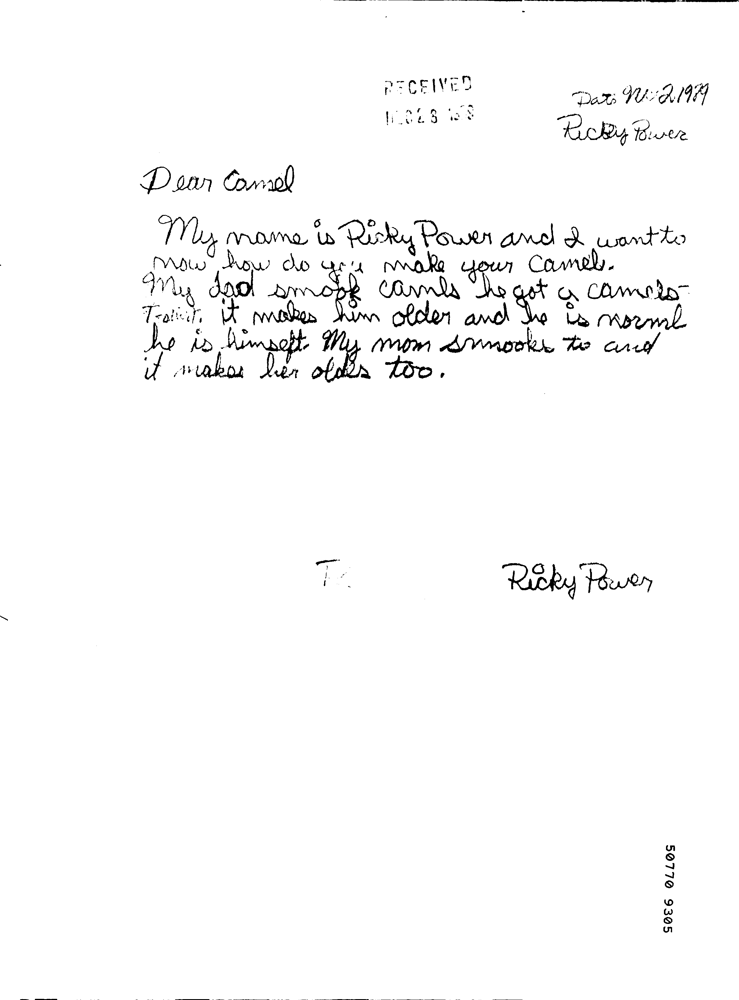 RECEIVED
Date 2 1979
Ricky Power
Dear Camel
My name is Ricky Power and I want to
now how do you make your Camel.
My dad smook camls he got a camels
it makes him older and he is norml
he is himself. My mom smookes to and
it makes her olders too.
Ricky Power
50770 9305